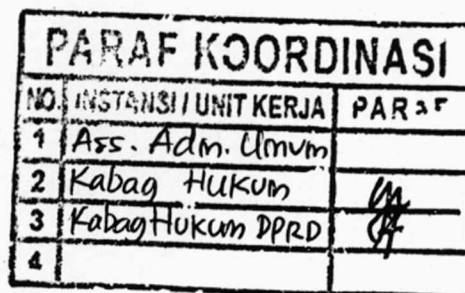 PARAF KOORDINASI
NO. INSTANSI / UNIT KERJA PARAF
1 Ass. Adm. Umum
2 Kabag Hukum
3 Kabag Hukum DPRD
4